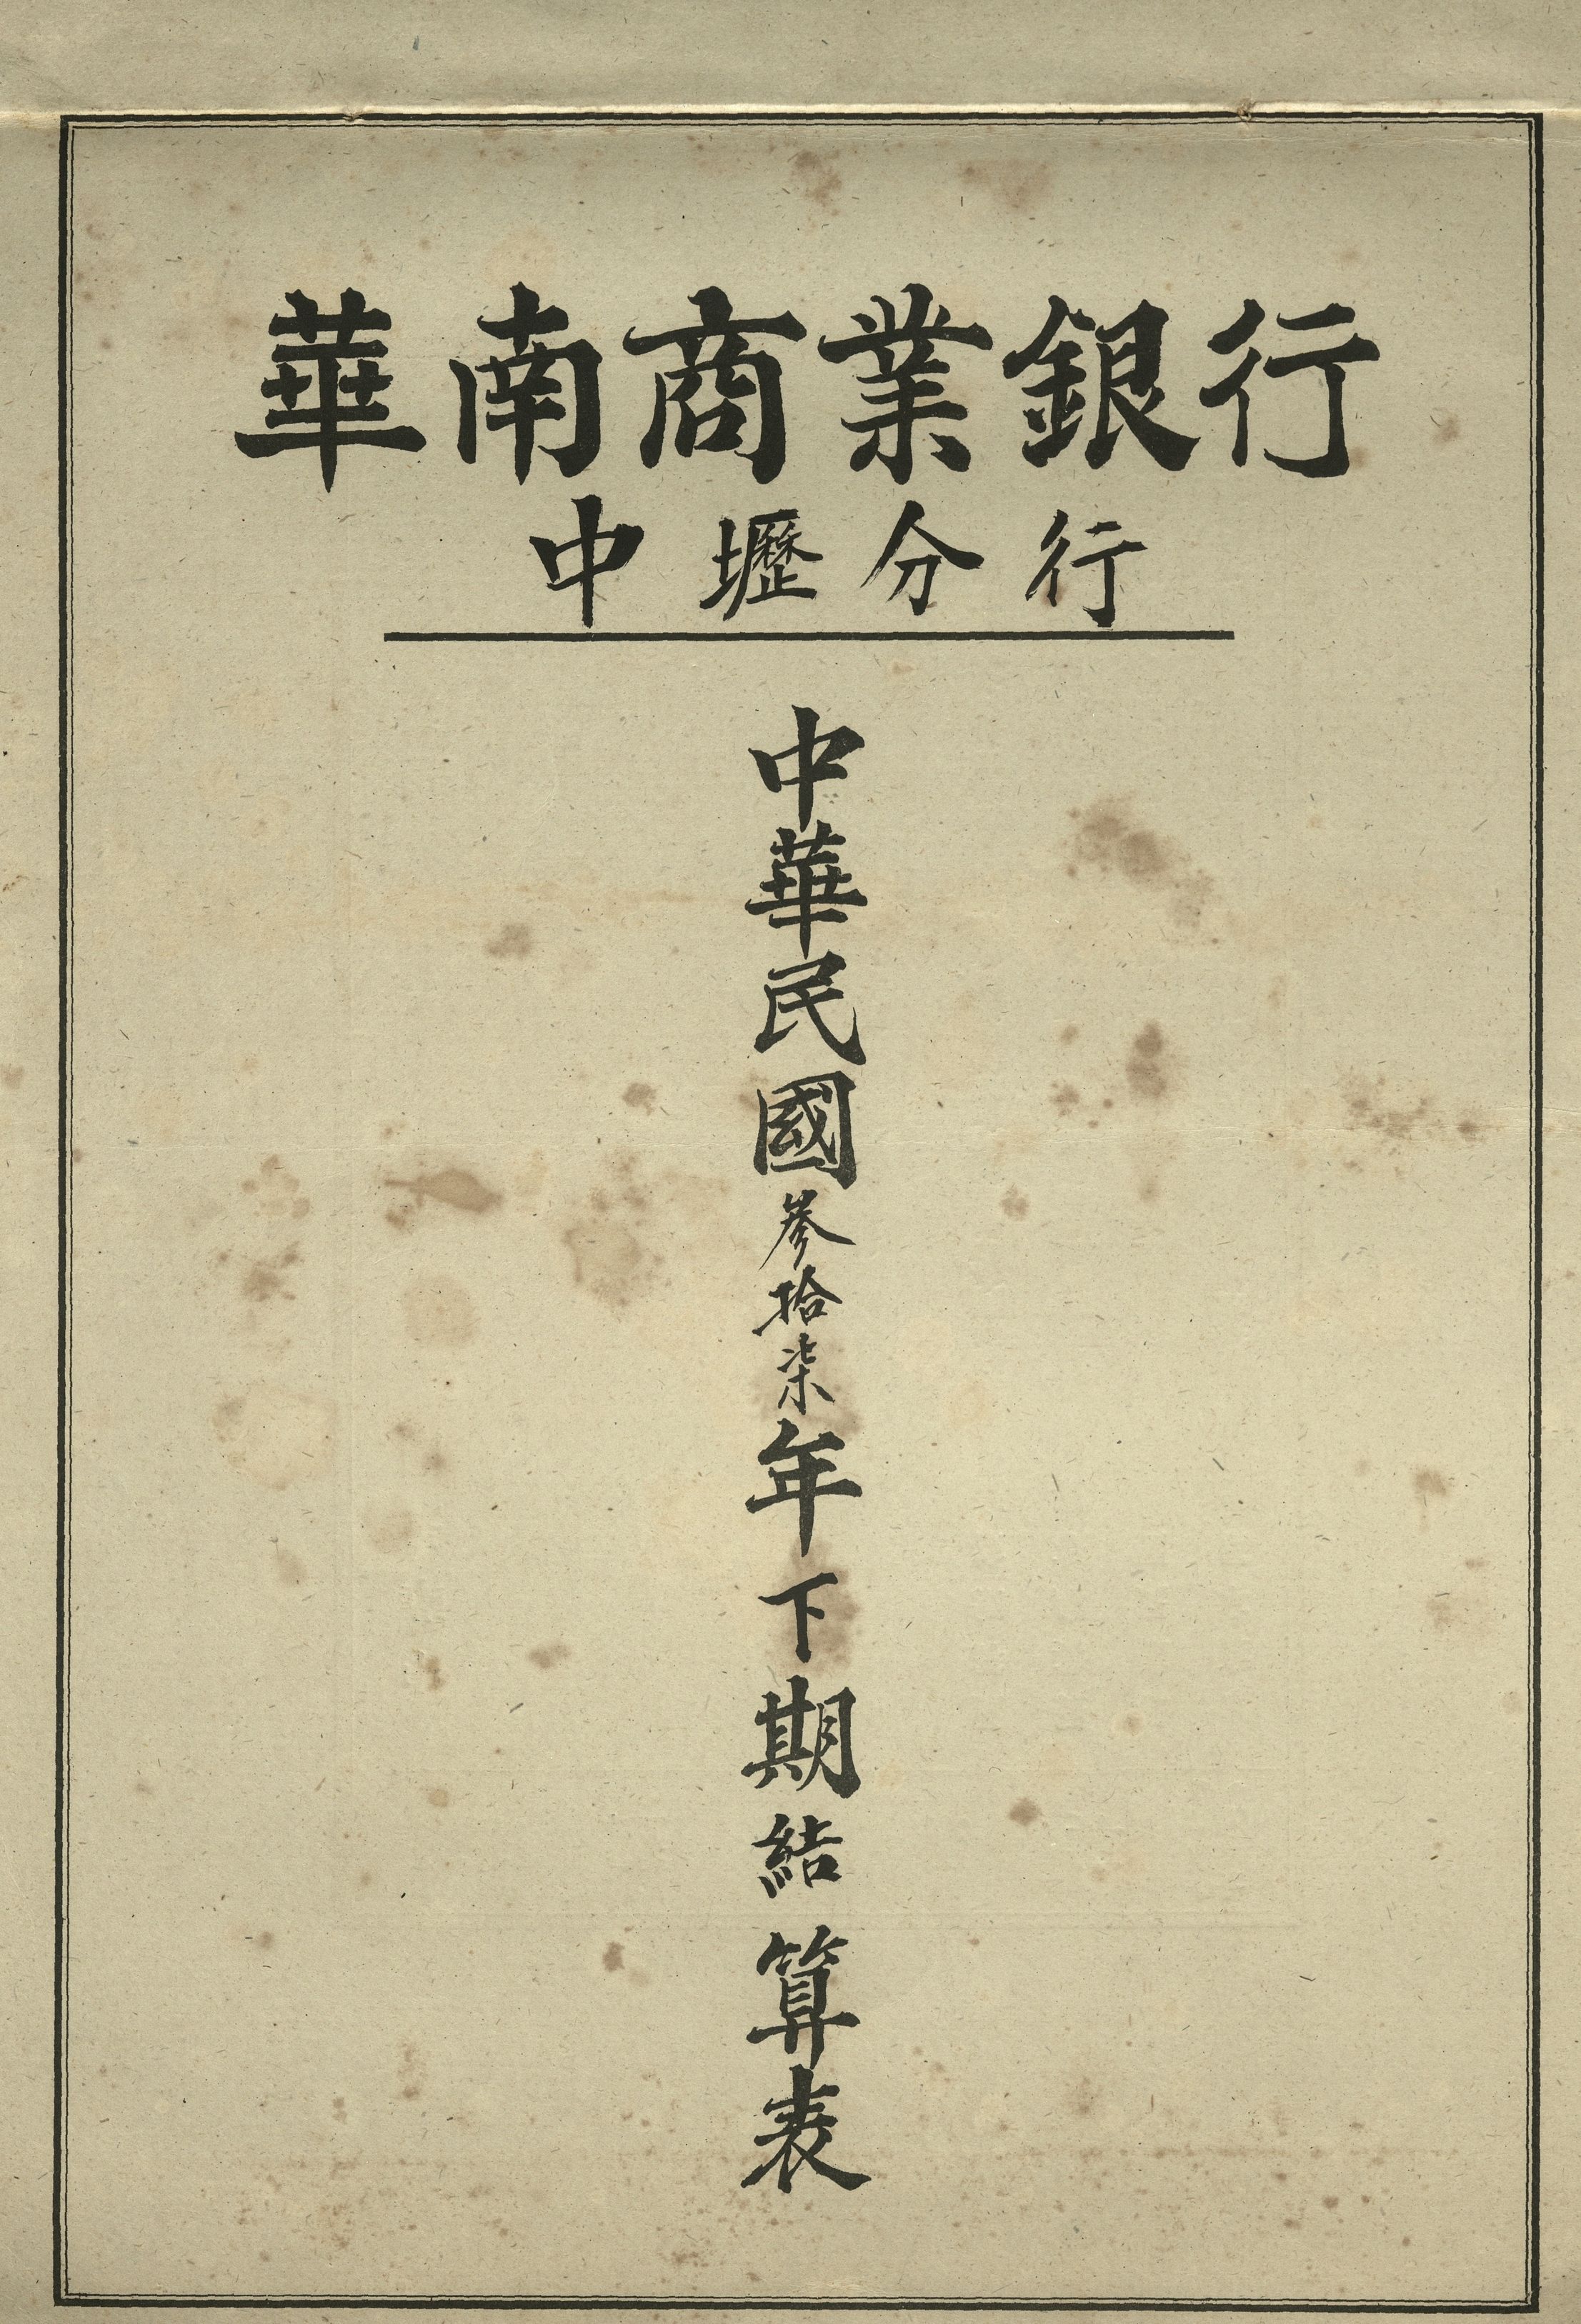 華南商業銀行
中壢分行
中華民國叁拾柒年下期結算表